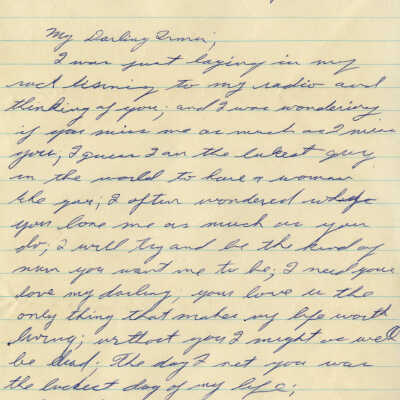 My Darling Irma;
I was just laying in my
rack lisning to my radio and
thinking of you; and I was wondering
if you miss me as much as I miss
you; I guess I am the lukest guy
in the world to have a woman
like you; I often wondered why
you love me as much as you
do; I will try and be the kind of
man you want me to be; I need your
love my darling, your love is the
only thing that makes my life worth
living; without you I might as well
be dead; the day I met you was
the luckest day of my life;